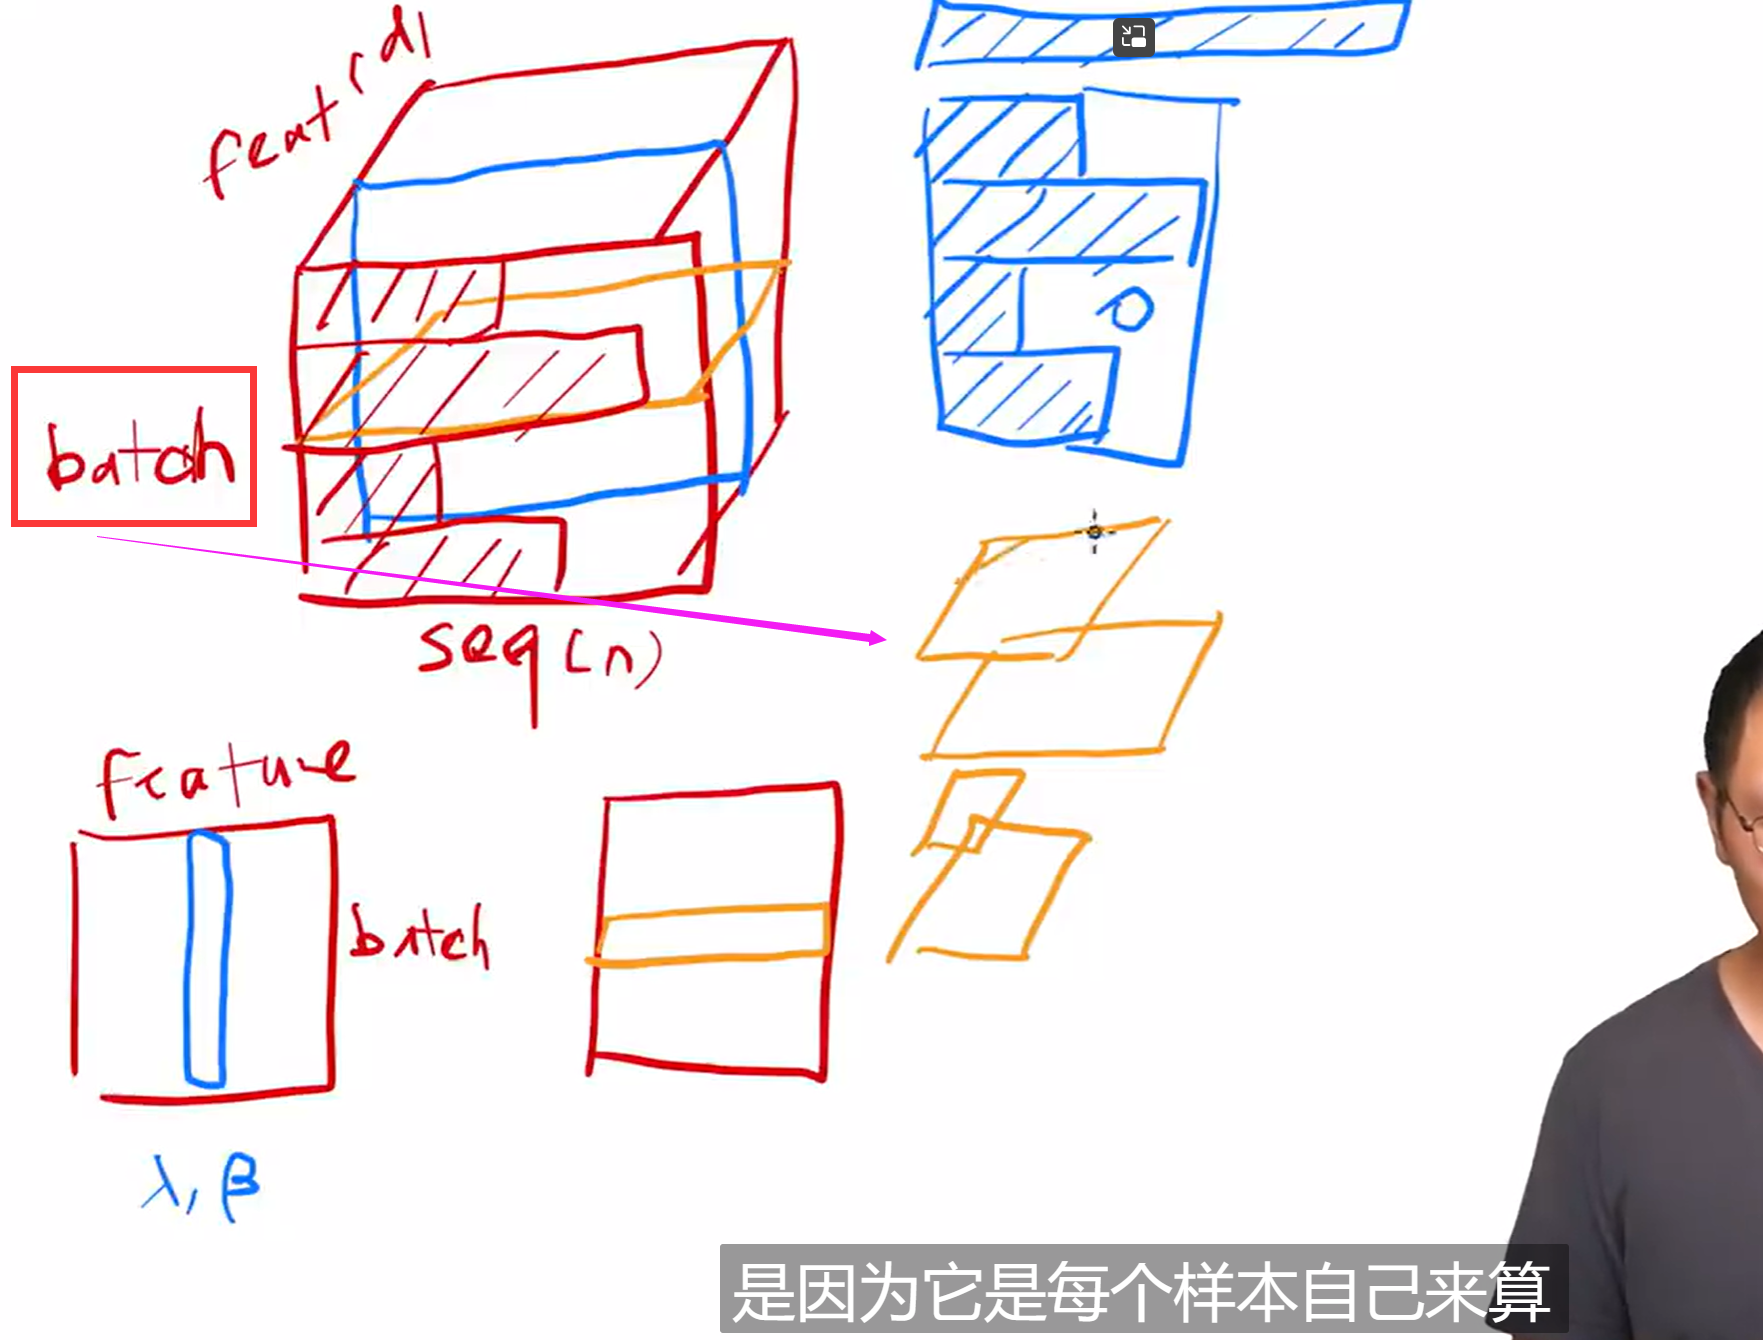 feat (d)
batch
seq (n)
feature
batch
λ, β
0
是因为它是每个样本自己来算